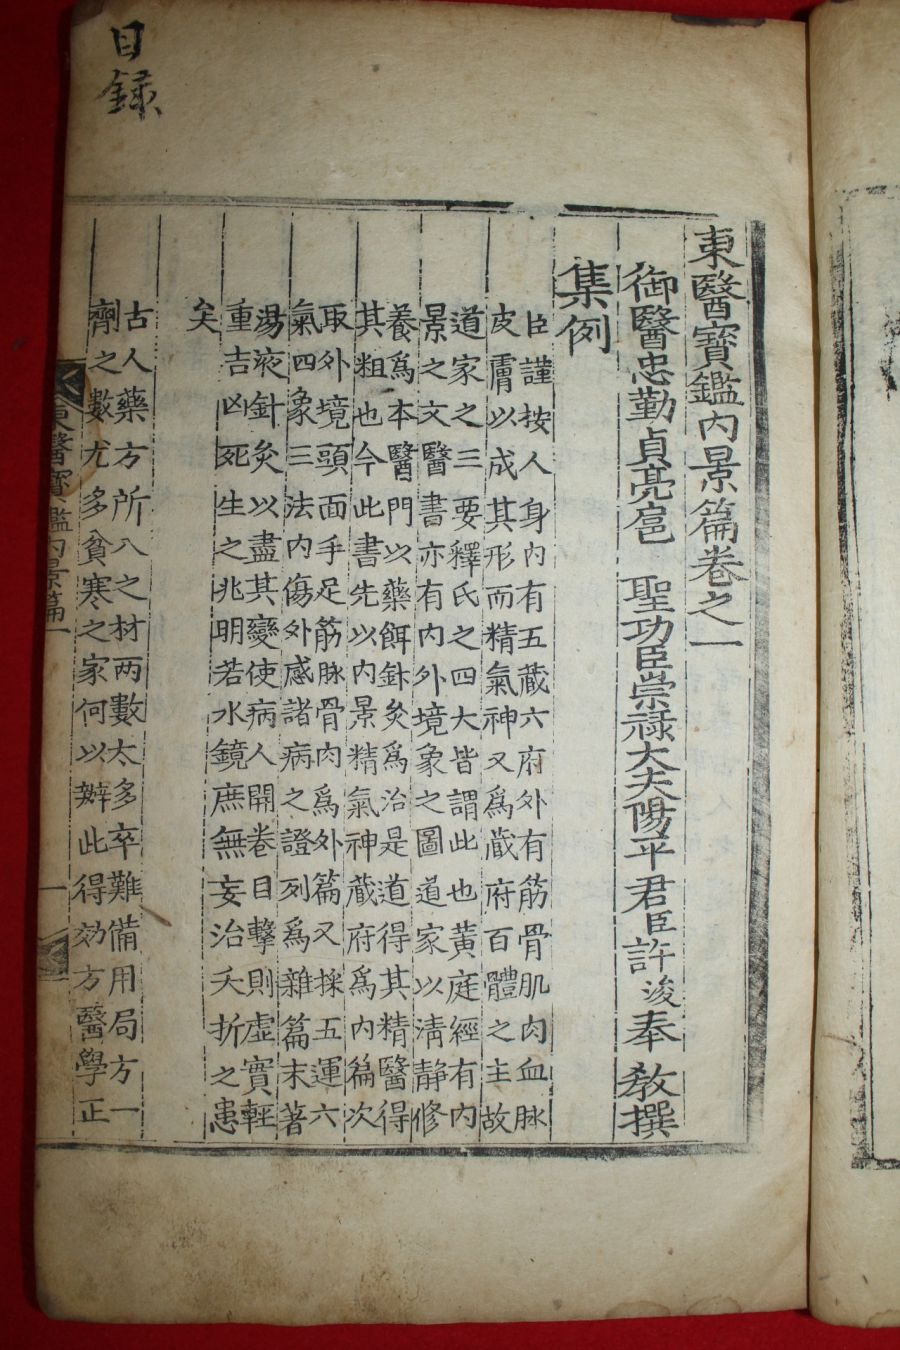 目錄
東醫寶鑑內景篇卷之一
御醫忠勤貞亮扈 聖功臣崇祿大夫陽平君臣許浚奉 敎撰
集例
臣謹按人身內有五藏六府外有筋骨肌肉血脉
皮膚以成其形而精氣神又爲藏府百體之主故
道家之三要釋氏之四大皆謂此也黃庭經有內
景之文醫書亦有內外境象之圖道家以淸靜修
養爲本醫門以藥餌針灸爲治是道得其精醫得
其粗也今此書先以內景精氣神藏府爲內篇次
取外境頭面手足筋脉骨肉爲外篇又採五運六
氣四象三法內傷外感諸病之證列爲雜篇末著
湯液針灸以盡其變使病人開卷目擊則虛實輕
重吉凶死生之兆明若水鏡庶無妄治夭折之患
矣
古人藥方所入之材两數太多卒難備用局方一
劑之數尤多貧寒之家何以辦此得効方醫學正
東醫寶鑑內景篇一
一